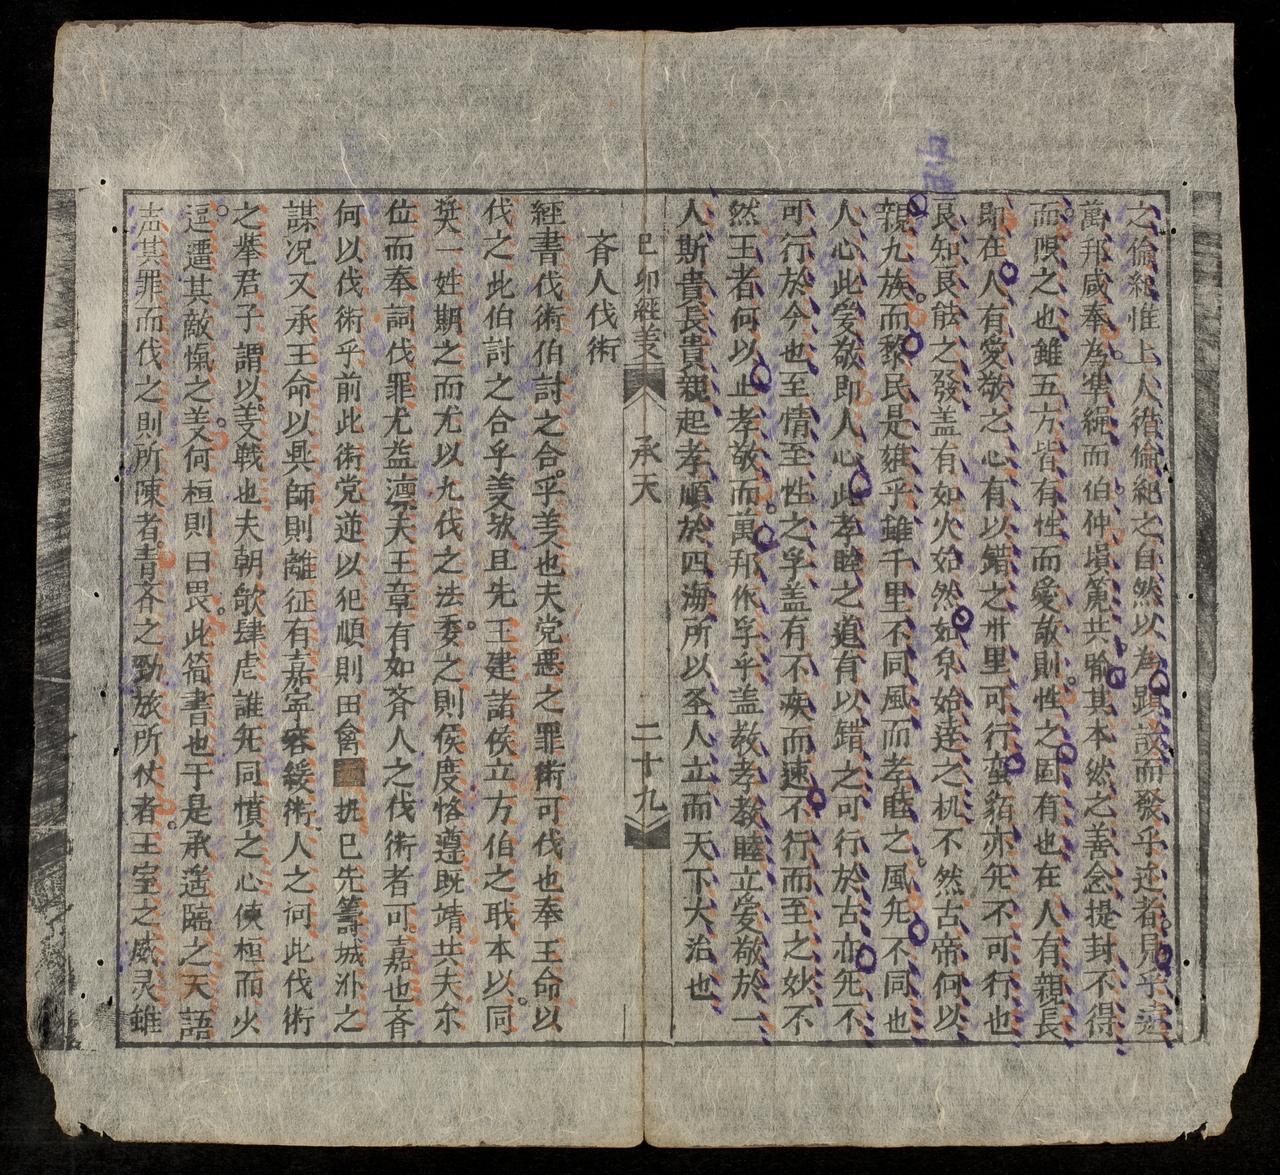 之倫紀惟上人循倫紀之自然以為蹟故而發乎迩者見乎遠
萬邦咸奉為準繩而伯仲塤篪共喻其本然之善念提封不得
而限之也雖五方皆有性而愛敬則性之固有也在人有親長
即在人有愛敬之心有以錯之卅里可行蛮貊亦旡不可行也
良知良能之發盖有如火始然如泉始達之机不然古帝何以
親九族而黎民是雍乎雖千里不同風而孝睦之風旡不同也
人心此愛敬即人心此孝睦之道有以錯之可行於古亦旡不
可行於今也至情至性之孚盖有不疾而速不行而至之妙不
然王者何以止孝敬而萬邦作孚乎盖教孝教睦立爱敬於一
人斯貴長貴親起孝順於四海所以圣人立而天下大治也
己卯經義 承天 二十九
斉人伐術
經書伐術伯討之合乎義也夫党悪之罪術可伐也奉王命以
伐之此伯討之合乎義欤且先王建諸侯立方伯之耺本以同
奨一姓期之而尤以九伐之法委之則侯度恪遵既靖共夫尔
位而奉詞伐罪尤益凛夫王章有如斉人之伐術者可嘉也斉
何以伐術乎前此術党逆以犯順則田禽 執已先籌城外之
謀况又承王命以興師則離征有嘉寜容緩術人之討此伐術
之挙君子謂以義戦也夫朝歆肆虐誰旡同憤之心使桓而少
逗遛其敵愾之義何桓則曰畏此簡書也于是承遥臨之天語
声其罪而伐之則所陳者青斉之勁旅所仗者王室之威灵雖